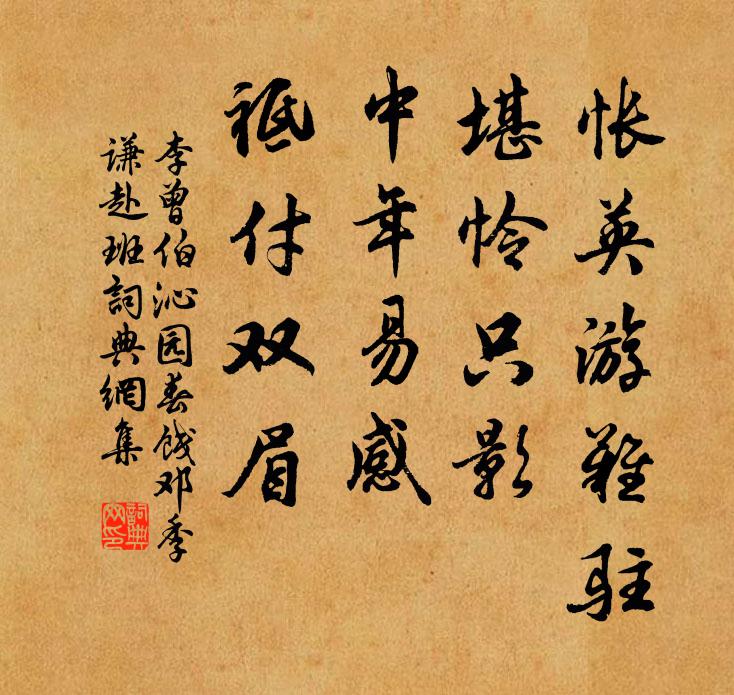 怅英游难驻
堪怜只影
中年易感
祗付双眉
李曾伯沁园春饯邓季
谦赴班詞典網集
詞典
网印